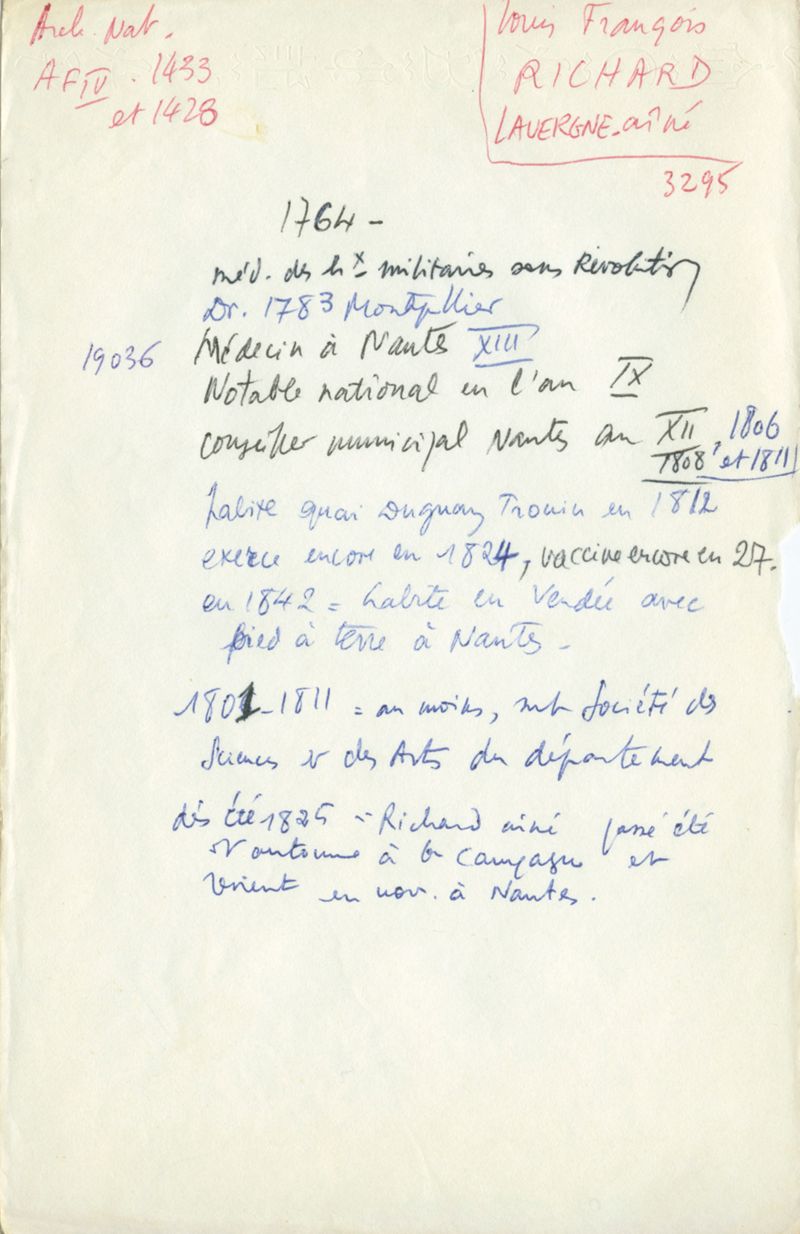 Arch. Nat.
AF IV . 1433
et 1428
Louis François
RICHARD
LAVERGNE-aîné
3295
1764 -
méd. des hx militaires sous Révolution
Dr. 1783 Montpellier
19036
Médecin à Nantes XIII
Notable national en l'an IX
conseiller municipal Nantes an XII, 1806
1808 et 1811
habite quai Duguay Trouin en 1812
exerce encore en 1824, vaccine encore en 27.
en 1842 = habite en Vendée avec
pied à terre à Nantes -
1801-1811 = au moins, Société des
Sciences & des Arts du département
dès été 1825 - Richard aîné passe été
& automne à la campagne et
revient en nov. à Nantes.